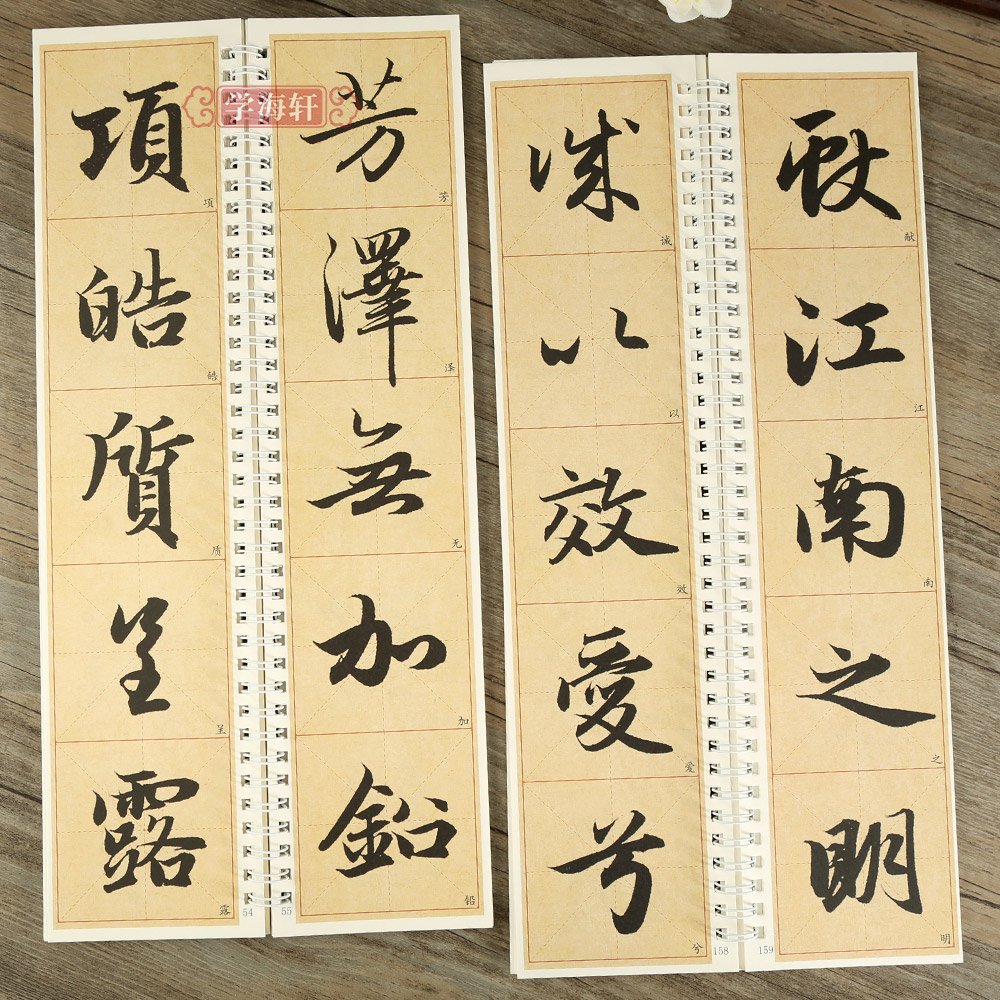 学海轩
項皓質呈露
項
皓
质
呈
露
54
芳澤無加鉛
芳
泽
无
加
铅
55
誠以效愛兮
诚
以
效
爱
兮
158
獻江南之明
献
江
南
之
明
159